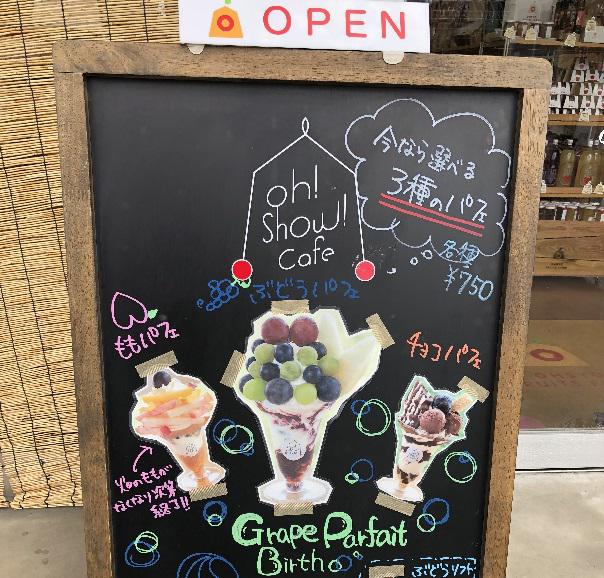 OPEN
今なら選べる
3種のパフェ
各種
¥750
oh!
show!
cafe
ぶどうパフェ
ももパフェ
チョコパフェ
ももが
なくなり次第
終了!!
Grape Parfait
Birth
ぶどうソフト